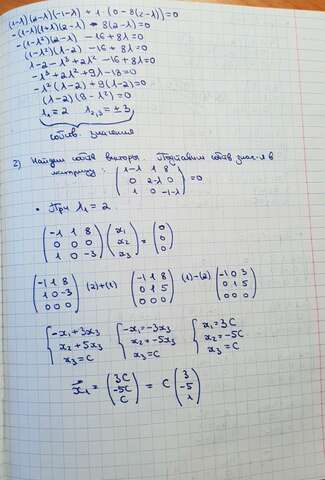 (1-λ)(2-λ)(-1-λ) + 1·(0-8(2-λ))=0
-(1-λ)(1+λ)(2-λ) - 8(2-λ)=0
-(1-λ²)(2-λ) -16+8λ=0
(1-λ²)(λ-2) -16+8λ=0
λ-2-λ³+2λ²-16+8λ=0
-λ³+2λ²+9λ-18=0
-λ²(λ-2)+9(λ-2)=0
(λ-2)(9-λ²)=0
λ₁=2 λ₂,₃=±3
собств. значения
2) Найдём собств векторы. Подставим собств знач-я в
матрицу: (1-λ 1 8
0 2-λ 0
1 0 -1-λ) =0
• При λ₁=2
(-1 1 8
0 0 0
1 0 -3) (x₁
x₂
x₃) = (0
0
0)
(-1 1 8
1 0 -3
0 0 0) (2)+(1) (-1 1 8
0 1 5
0 0 0) (1)-(2) (-1 0 3
0 1 5
0 0 0)
{-x₁+3x₃
x₂+5x₃
x₃=C {-x₁=-3x₃
x₂=-5x₃
x₃=C {x₁=3C
x₂=-5C
x₃=C
x₁ = (3C
-5C
C) = C (3
-5
1)